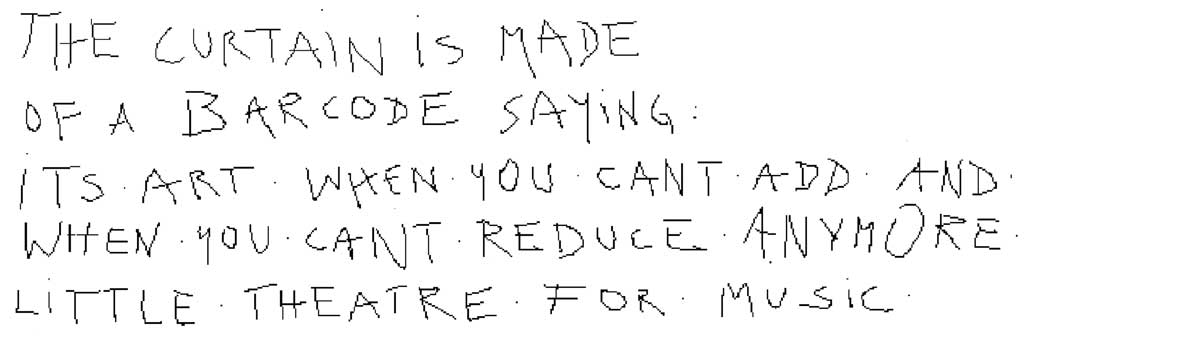 THE CURTAIN iS MADE
OF A BARCODE SAYiNG:
iTS · ART · WHEN · YOU · CANT · ADD · AND ·
WHEN · YOU · CANT · REDUCE · ANYMORE ·
LiTTLE · THEATRE · FOR · MUSiC ·